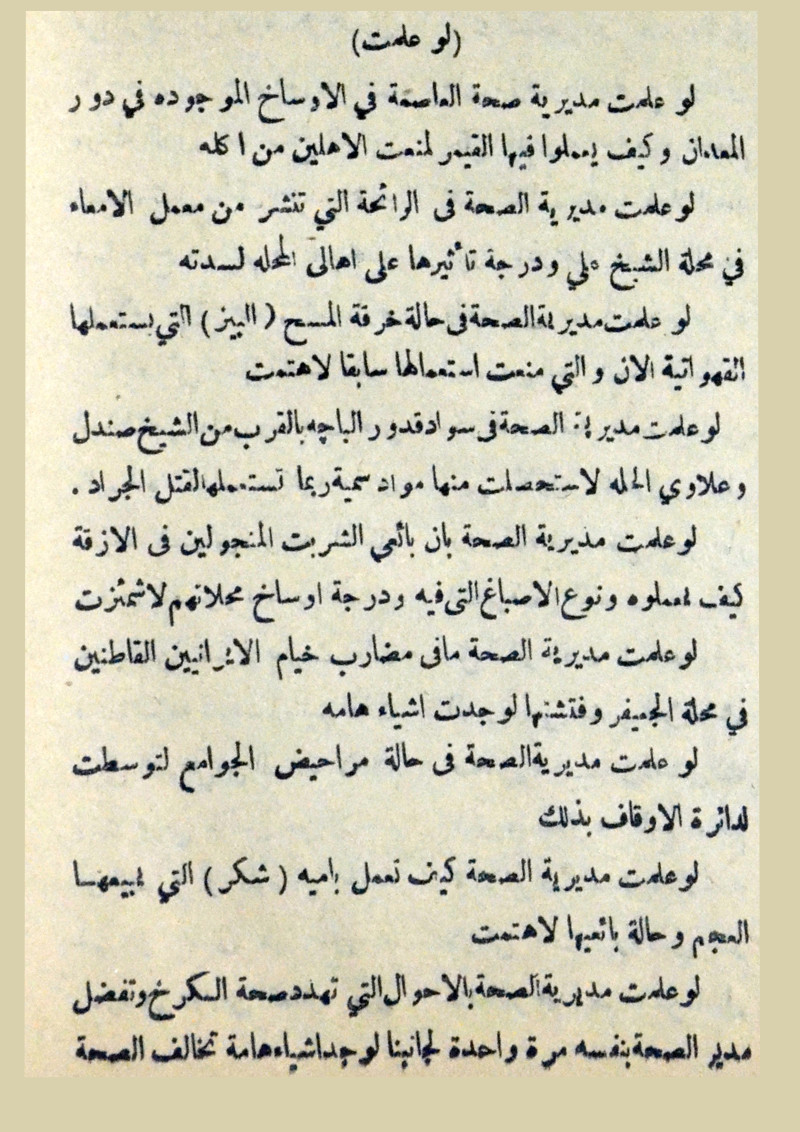 (لو علمت)
لو علمت مديرية صحة العاصمة في الاوساخ الموجوده في دور
المعدان وكيف يعملوا فيها القيمر لمنعت الاهلين من اكله
لو علمت مديرية الصحة فى الرائحة التي تنشر من معمل الامعاء
في محلة الشيخ علي ودرجة تأثيرها على اهالى المحله لسدته
لو علمت مديرية الصحة فى حالة خرقة المسح (البيز) التي يستعملها
القهواتية الان والتي منعت استعمالها سابقا لاهتمت
لو علمت مديرية الصحة فى سواد قدور الباچه بالقرب من الشيخ صندل
وعلاوي الحله لاستحصلت منها مواد سمية ربما تستعملها لقتل الجراد .
لو علمت مديرية الصحة بان بائعي الشربت المتجولين فى الازقة
كيف يعملوه ونوع الاصباغ التى فيه ودرجة اوساخ محلاتهم لاشمئزت
لو علمت مديرية الصحة مافى مضارب خيام الايرانيين القاطنين
في محلة الجعيفر وفتشتها لوجدت اشياء هامه
لو علمت مديرية الصحة فى حالة مراحيض الجوامع لتوسطت
لدائرة الاوقاف بذلك
لو علمت مديرية الصحة كيف تعمل باميه (شكر) التي يبيعها
العجم وحالة بائعيها لاهتمت
لو علمت مديرية الصحة بالاحوال التي تهدد صحة الكرخ وتفضل
مدير الصحة بنفسه مرة واحدة لجانبنا لوجد اشياء هامة تخالف الصحة